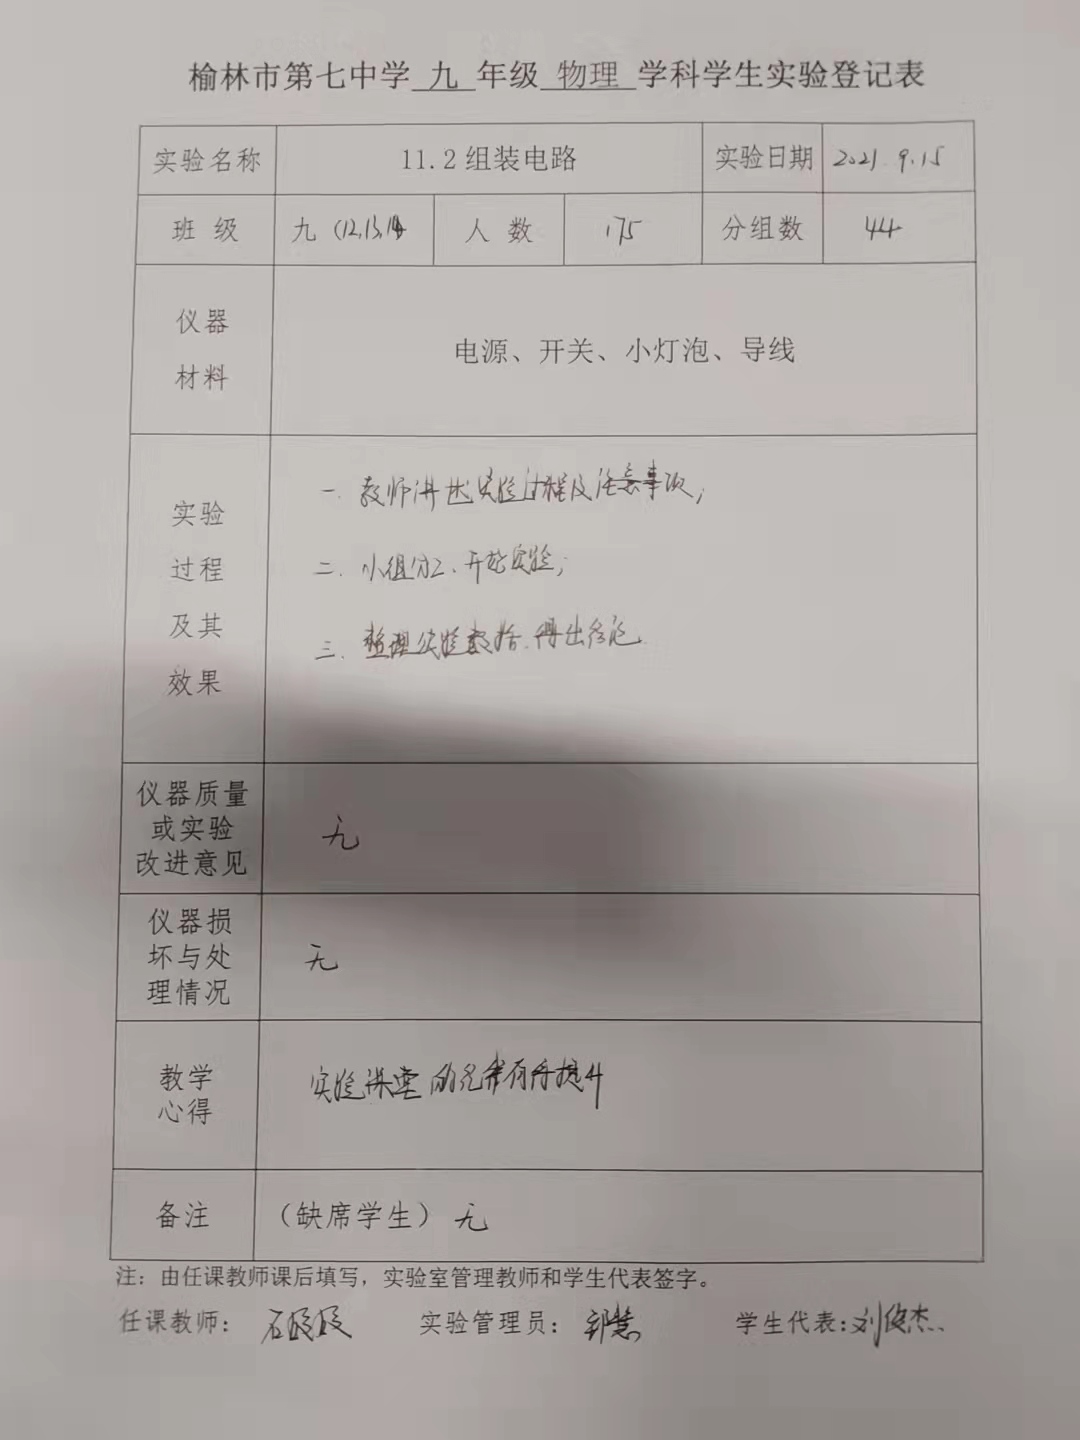 榆林市第七中学 九 年级 物理 学科学生实验登记表
实验名称 11.2组装电路 实验日期 2021.9.15
班 级 九(12,13,14) 人 数 175 分组数 44
仪器
材料
电源、开关、小灯泡、导线
实验
过程
及其
效果
一. 教师讲述实验过程及注意事项;
二. 小组分工、开始实验;
三. 整理实验数据.得出结论.
仪器质量
或实验
改进意见
无
仪器损
坏与处
理情况
无
教学
心得
实验课堂的效率有所提升
备注 (缺席学生) 无
注：由任课教师课后填写，实验室管理教师和学生代表签字。
任课教师： 石 实验管理员： 慧 学生代表：刘俊杰